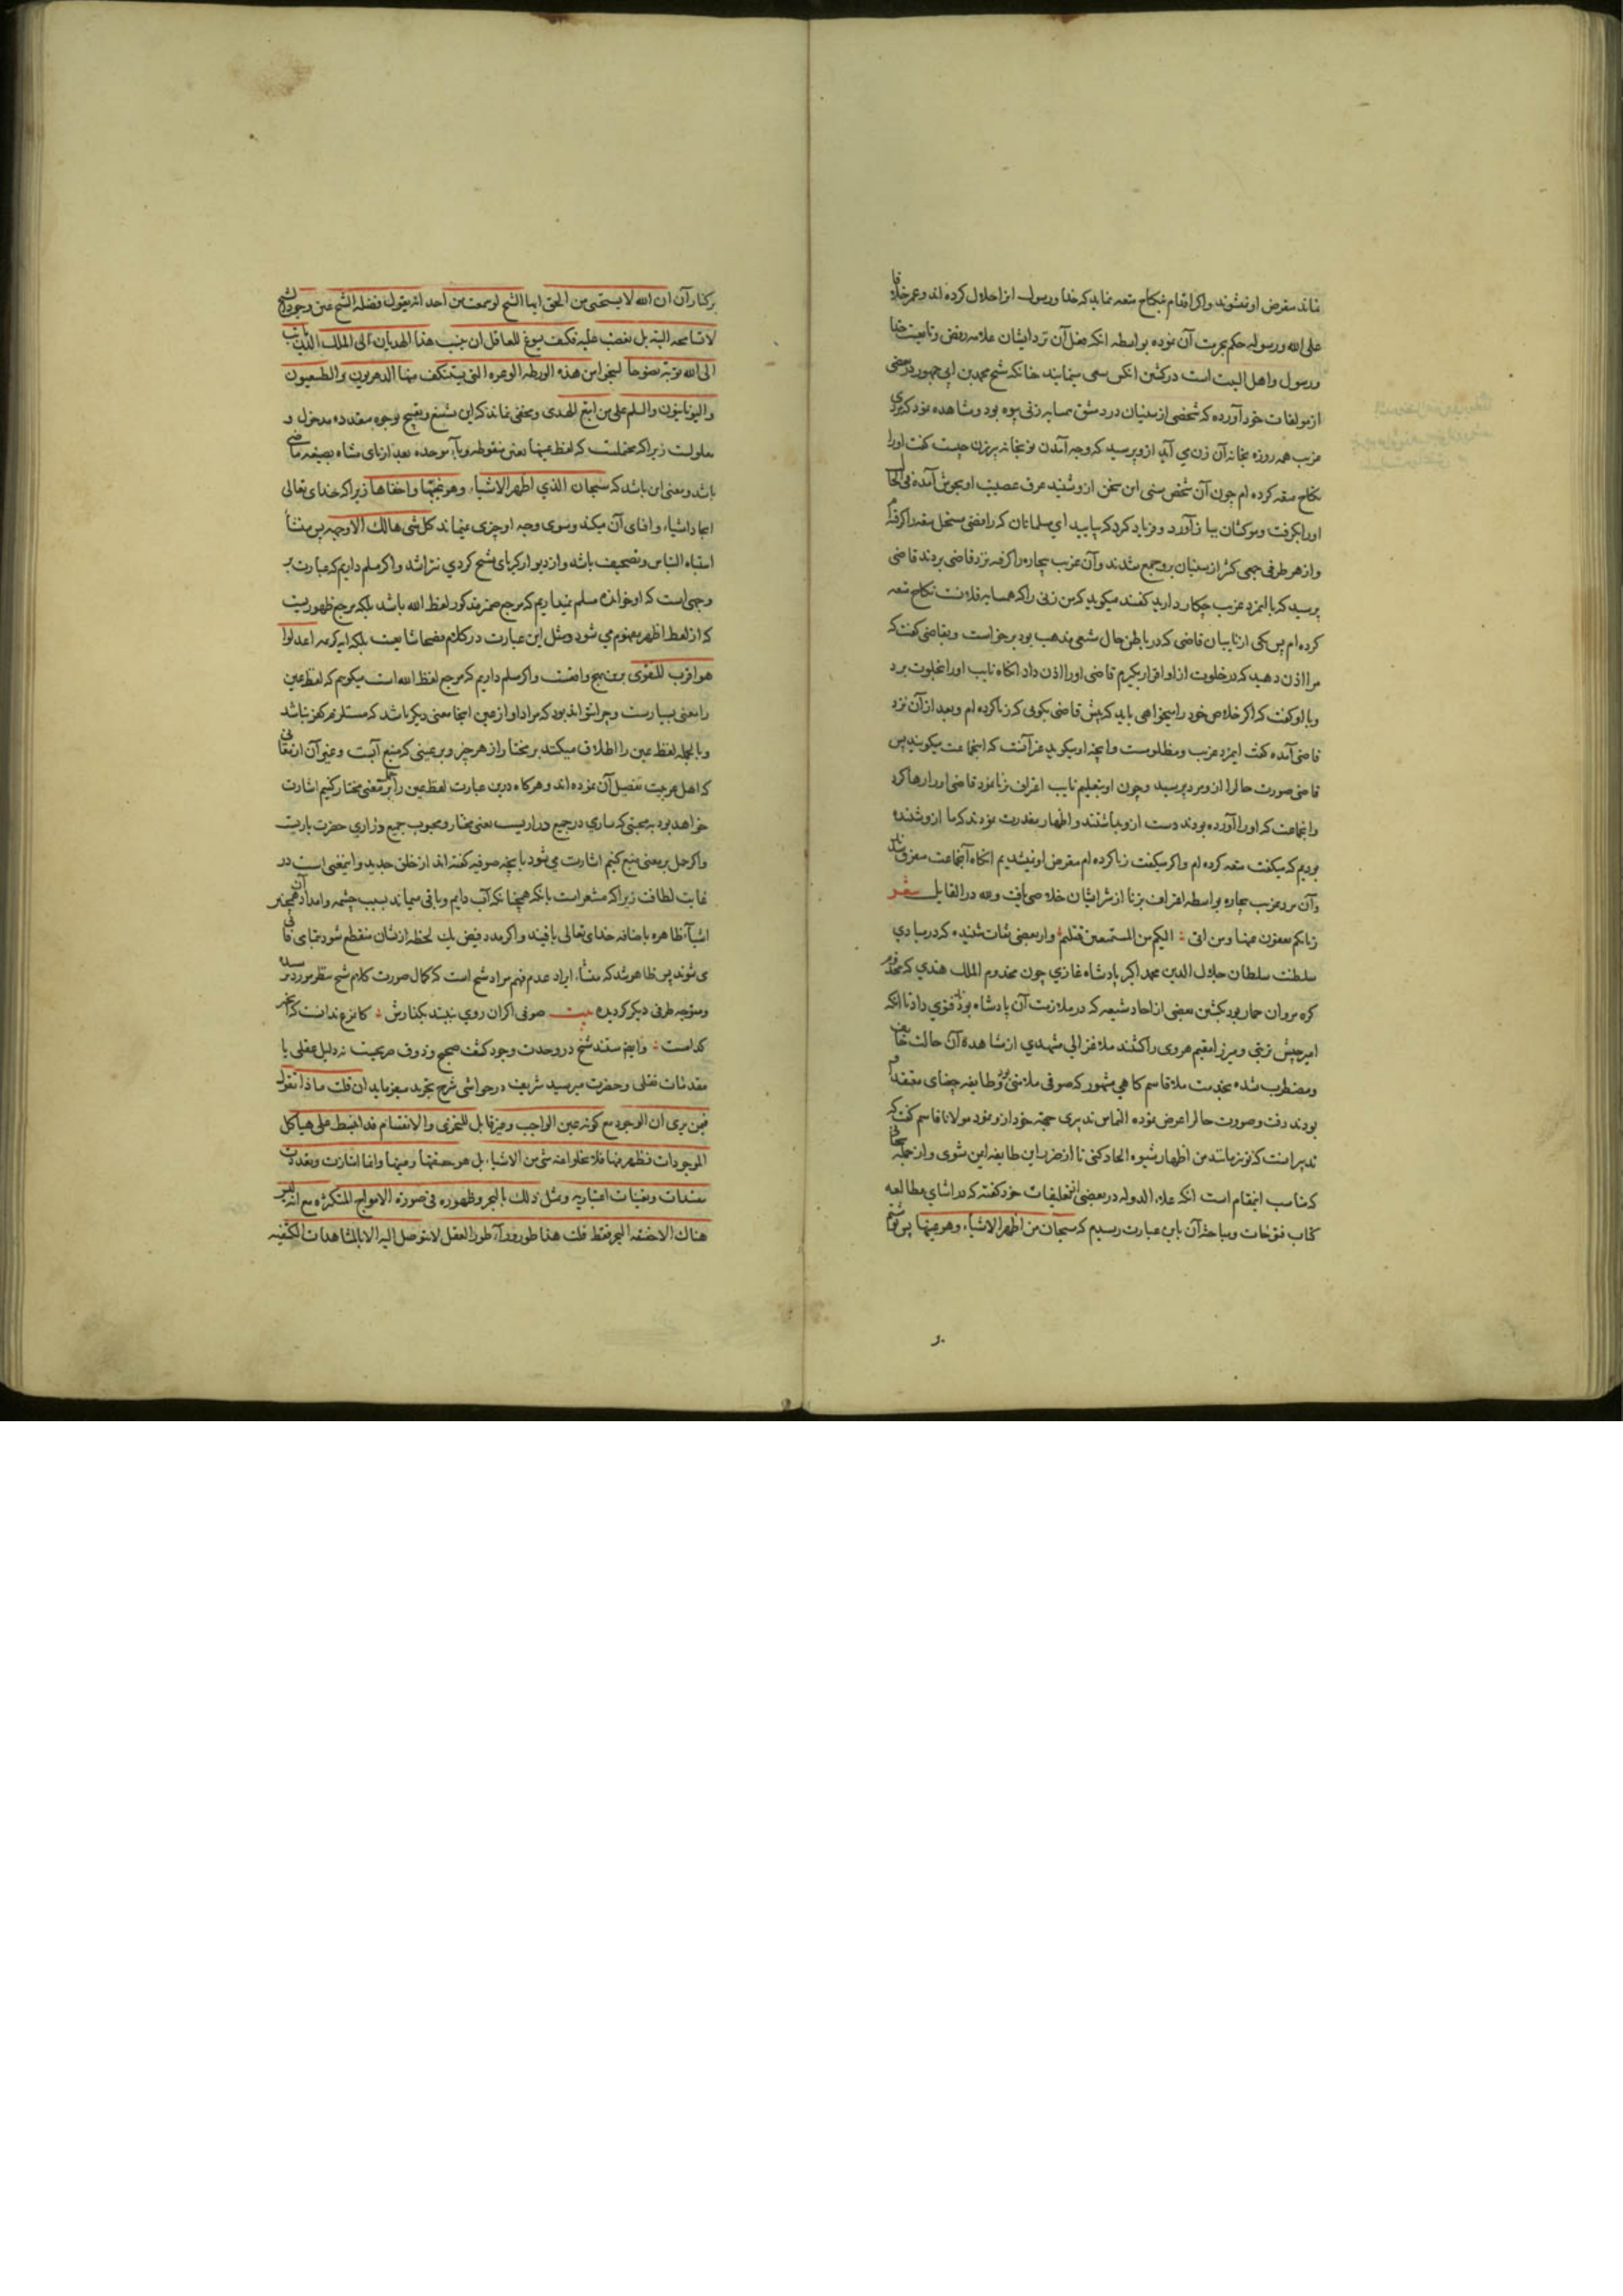 ماند متعرض او نشوند و اگر اقدام بنکاح متعه نماید که خدا و رسول انرا حلال کرده اند و عمر خلافا
علی الله و رسوله حکم بحرمت آن نموده بواسطه انکه فعل آن نزد ایشان علامه رفض و تابعیت خدا
و رسول و اهل البیت است در کشتن انکس سعی مینمایند چنانکه شیخ محمد بن ابی جمهور در بعضی
از مولفات خود آورده که شخصی از سنیان در دمشق همسایه زنی بیوه بود و مشاهده نمود که مردی
عزب همه روزه بخانه آن زن می آید ازو پرسید که وجه آمدن تو بخانه پیرزن چیست گفت او را
نکاح متعه کرده ام چون آن شخص سنی این سخن ازو شنید عرق عصبیت او بجوش آمده فی الحال
او را بگرفت و موکشان ببازار آورد و فریاد کرد که بیایید ای مسلمانان که رافضی مستحل متعه را گرفته ام
و از هر طرفی جمعی کثیر از سنیان برو جمع شدند و آن عزب بیچاره را گرفته نزد قاضی بردند قاضی
پرسید که با این مرد عزب چکار دارید گفتند میگوید که من زنی را که همسایه فلانست نکاح متعه
کرده ام پس یکی از نایبان قاضی که در باطن حال شیعی مذهب بود برخواست و بقاضی گفت که
مرا اذن دهید که در خلوت از او اقرار بگیرم قاضی او را اذن داد انکاه نایب او را بخلوت برد
و با او گفت که اگر خلاص خود را میخواهی باید که پیش قاضی بگویی که زنا کرده ام و بعد از آن نزد
قاضی آمده گفت این مرد عزب و مظلومست و آنچه او میگوید غیر آنست که اینجماعت میگویند پس
قاضی صورت حال را از و پرسید و چون او بتعلیم نایب اعتراف بزنا نمود قاضی او را رها کرد
و انجماعت که او را آورده بودند دست ازو بداشتند و اظهار معذرت نمودند که ما ازو شنیده
بودیم که میگفت متعه کرده ام و اگر میگفت زنا کرده ام متعرض او نمیشدیم انکاه آنجماعت متفرق شدند
و آن مرد عزب بیچاره بواسطه اعتراف بزنا از شر ایشان خلاصی یافت و لله در القایل شعر
زناکم تعفون عنها و من اتی : الیکم من المستمتعین قتلتم : و از بعضی ثقات شنیده که در مبادی
سلطنت سلطان جلال الدین محمد اکبر پادشاه غازی چون مخدوم الملک هندی که مخدوم
کره مروان حمار بود بکشتن بعضی از احاد شیعه که در ملازمت آن پادشاه بود فتوی داد تا انکه
امیر حبش تربتی و میرزا مقیم هروی را کشتند ملا غزالی مشهدی از مشاهده آن حالت خایف
و مضطرب شده بخدمت ملا قاسم کاهی مشهور که صوفی ملامتی بود و طایفه جغتای معتقد او
بودند رفت و صورت حال را عرض نموده التماس تدبیری جهة خود ازو نمود مولانا قاسم گفت که
تدبیر انست که تو نیز مانند من اظهار شیوه الحاد کنی تا از ضرر این طایفه ایمن شوی و از جمله سخنانی
که مناسب اینمقام است انکه علاء الدوله در بعضی از تعلیقات خود گفته که در اثنای مطالعه
کتاب فتوحات و مباحثه آن باین عبارت رسیدیم که سبحان من اظهر الاشیاء و هو عینها پس نوشتم
بر کنار آن ان الله لا یستحیی من الحق ایها الشیخ لو سمعت من احد انه یقول فضلة الشیخ عین وجود الشیخ
لا تسامحه البته بل تغضب علیه فکیف یسوغ للعاقل ان ینسب هذا الهذیان الی الملک الدیان تب
الی الله توبة نصوحا لتنجو من هذه الورطه الوعره التی یستنکف منها الدهریون و الطبیعیون
و الیونانیون و السلم علی من اتبع الهدی و مخفی نماند که این تشنیع و تقبیح بوجوه متعدده مدخول و
معلولست زیرا که محتملست که لفظ عینها بغین منقوطه و یاء موحده بعد از یای مثناه بصیغه ماضی
باشد و معنی ان باشد که سبحان الذی اظهر الاشیاء و هو غیبها و اخفاها زیرا که خدای تعالی
ایجاد اشیاء و افنای آن میکند و سوی وجه او چیزی نمیماند کل شی هالک الا وجهه پس منشأ
اشتباه التباس و تصحیف باشد و از دیوار کبریای شیخ کردی نتراشد و اگر مسلم داریم که عبارت بر
وجهی است که او خوانده مسلم نمیداریم که مرجع ضمیر مذکور لفظ الله باشد بلکه مرجع ظهوریست
که از لفظ اظهر مفهوم می شود و مثل این عبارت در کلام فصحا شایعست بلکه ایه کریمه اعدلوا
هو اقرب للتقوی برین نهج واقعست و اگر مسلم داریم که مرجع لفظ الله است میگویم که لفظ عین
را معنی بسیارست و چرا نتواند بود که مراد او از عین اینجا معنی دیگر باشد که مستلزم کفر نباشد
و بالجمله لفظ عین را اطلاق میکنند بر مختار از هر چیز و بر عینی که منبع آبست و غیر آن از معانی
که اهل عربیت تفصیل آن نموده اند و هرکاه درین عبارت لفظ عین را حمل بر معنی مختار کنیم اشارت
خواهد بود به محبتی که ساری در جمیع ذراریست یعنی مختار و محبوب جمیع ذراری حضرت باریست
و اگر حمل بر معنی منبع کنیم اشارت می شود بانچه صوفیه گفته اند از خلق جدید و اینمعنی است در
غایت لطافت زیرا که مشعر است بانکه همچنانکه آب دایم و باقی میماند بسبب چشمه و امداد آن همچنین
اشیاء ظاهره بافنانه خدای تعالی باقیند و اگر مدد فیض یک لحظه ازیشان منقطع شود بتمامی فانی
می شوند پس ظاهر شد که منشاء ایراد عدم فهم مراد شیخ است که کمال صورت کلام شیخ منظور
و متوجه طرفی دیگر کردیده بیت صوفی اکران روی نبیند بکنارش :
کدامست : و ایضا مستند شیخ در وحدت وجود کشف صحیح و ذوق صریحست نه دلیل عقلی یا
مقدمات نقلی و حضرت میر سید شریف در حواشی شرح تجرید میفرماید ان قلت ماذا تقول
فیمن یری ان الوجود مع کونه عین الواجب و غیر قابل للتجزی و الانقسام قد انبسط علی هیاکل
الموجودات فظهر فیها فلا یخلو عنه شی من الاشیاء بل هو حقیقتها و عینها و انما امتازت و تعددت
بتقیدات و تعینات اعتباریه و یمثل ذلک بالبحر و ظهوره فی صورة الامواج المتکثره مع انه لیس
هناک الا حقیقه البحر فقط قلت هذا طور وراء طور العقل لا یتوصل الیه الا بالمشاهدات الکشفیه